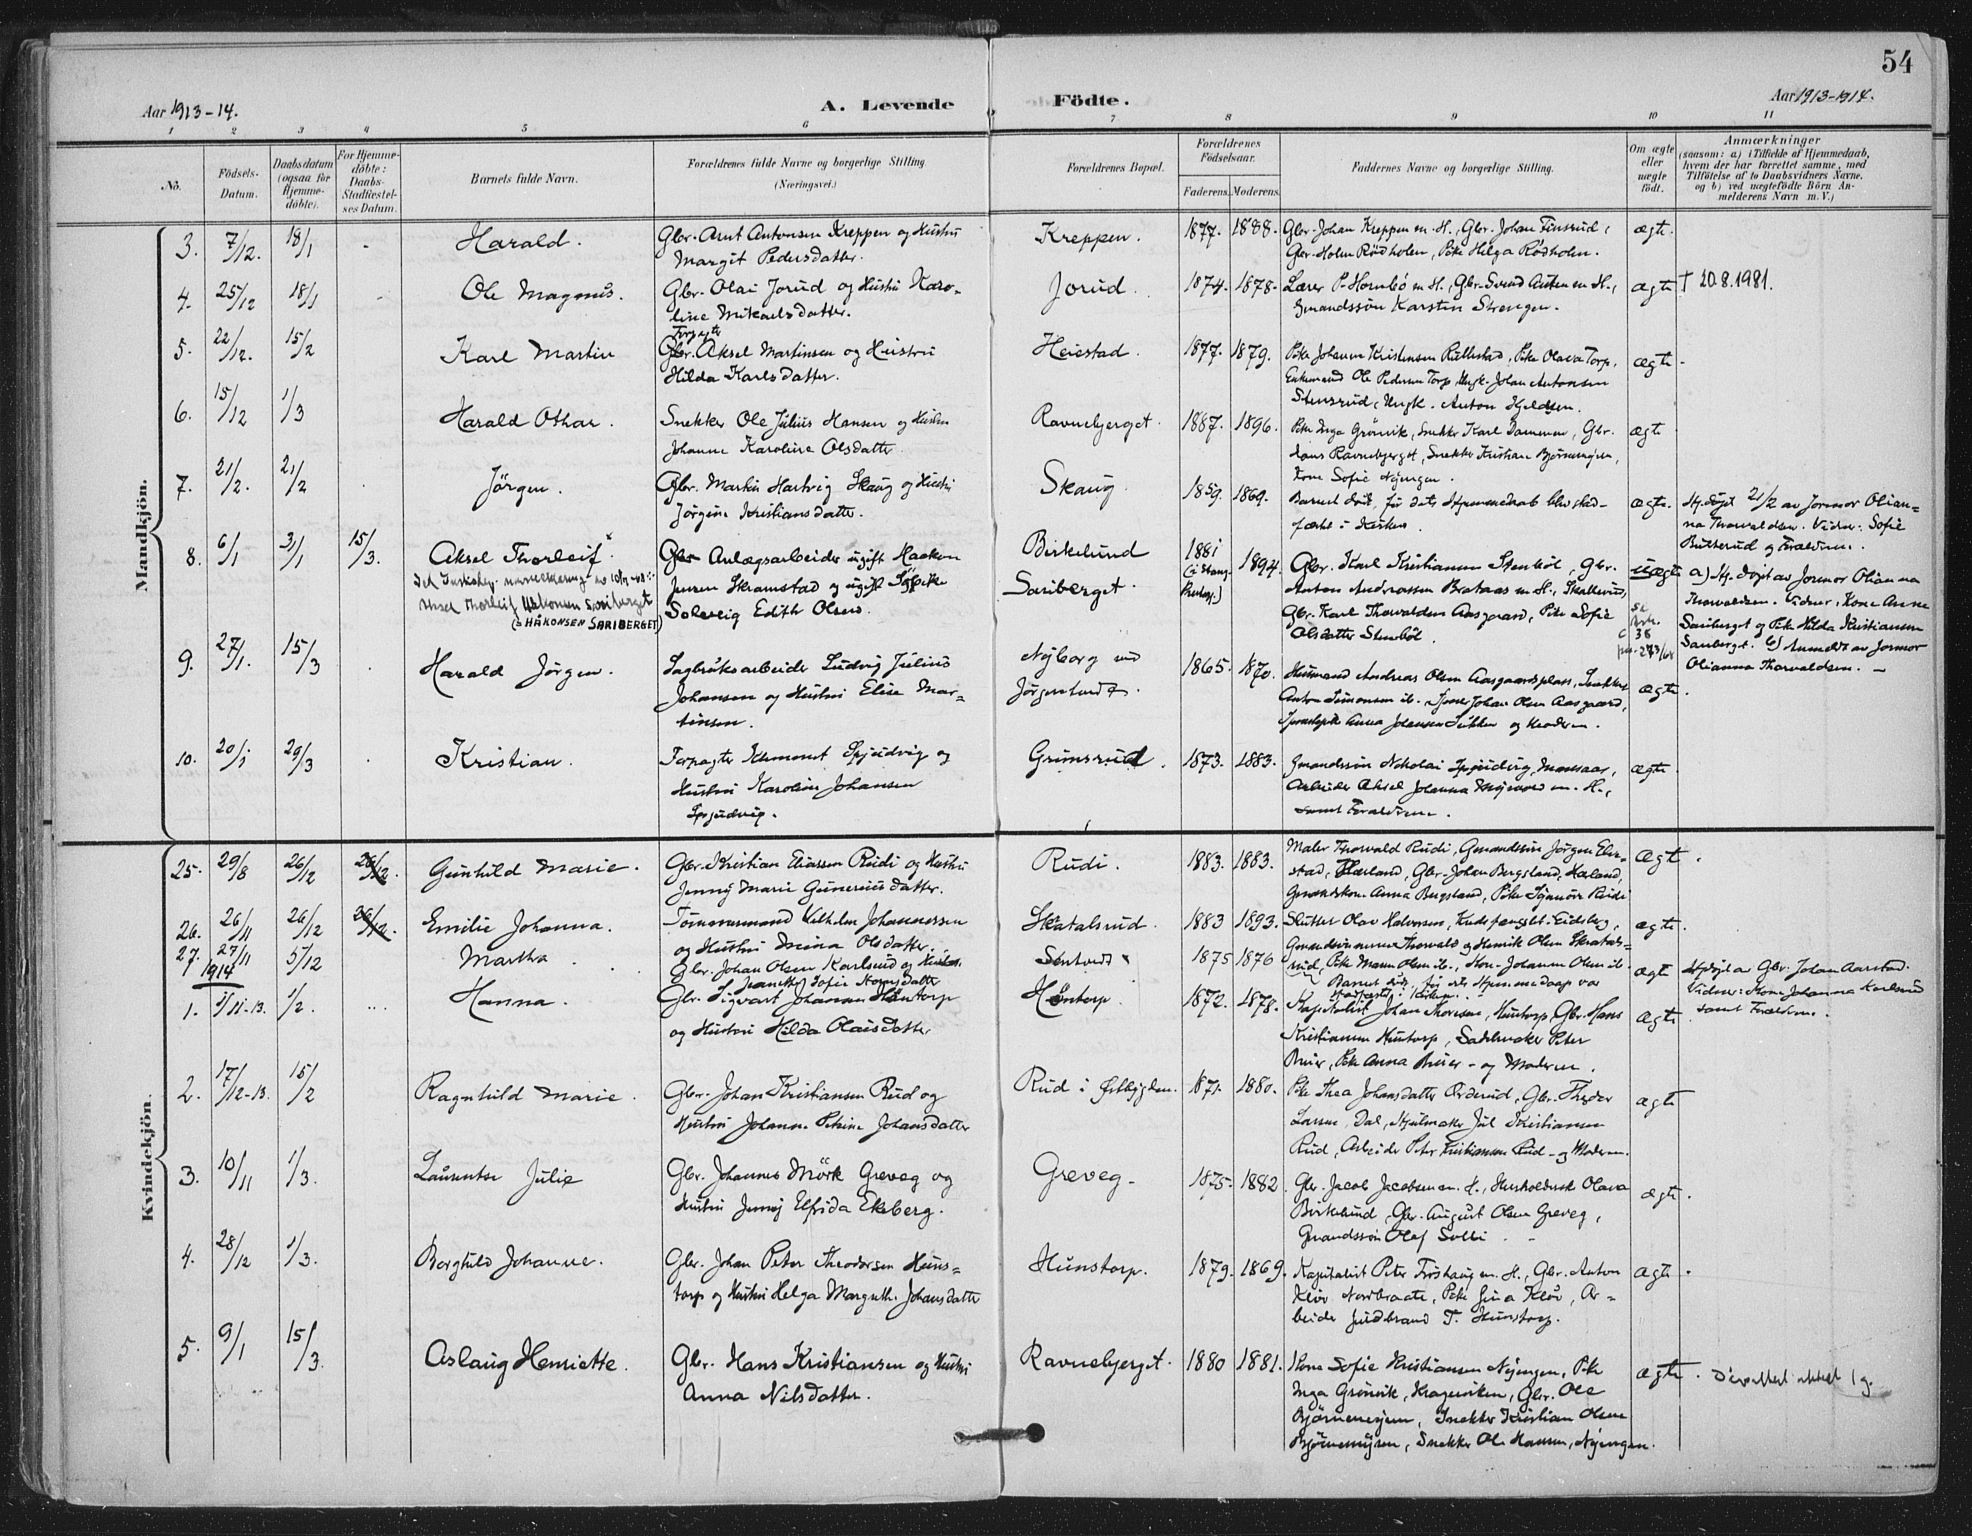 54
Aar 1913-14.
A. Levende
Födte.
Aar 1913-1914.
1 2 3 4 5 6 7 8 9 10 11
No.
Födsels-Datum.
Daabsdatum (ogsaa for Hjemmedöbte).
For Hjemmedöbte: Daabs-Stadfæstelses Datum.
Barnets fulde Navn.
Forældrenes fulde Navne og borgerlige Stilling (Næringsvei.)
Forældrenes Bopæl.
Forældrenes Födselsaar.
Faderens. Moderens.
Faddernes Navne og borgerlige Stilling.
Om ægte eller uægte födt.
Anmærkninger
(saasom: a) i Tilfælde af Hjemmedaab, hvem der har forrettet samme, med Tilföielse af to Daabsvidners Navne, og b) ved uægtefödte Börn Anmelderens Navn m. V.)
Mandkjön.
3. 7/12. 18/1 - Harald. Gbr. Arnt Antonsen Kreppen og Hustru
Margit Pedersdatter. Kreppen. 1877. 1888. Gbr. Johan Kreppen m. H., Gbr. Johan Finsrud,
Gbr. Holm Rödholen, Pike Helga Rödholen. ægte.
4. 25/12 18/1 - Ole Magnus. Gbr. Olai Jorud og Hustru Karo-
line Mikaelsdatter. Jorud. 1874. 1878. Lærer P. Hornbö m H., Gbr. Svend Austen m H.,
Gmandssön Karsten Strengen. ægte † 20.8.1981.
5. 22/12. 15/2 Karl Martin Forpagter
Aksel Martinsen og Hustru
Hilda Karlsdatter. Heiestad. 1877. 1879. Pike Johanne Kristensen Rullestad, Pike Olava Torp,
Enkemand Ole Pedersen Torp, Ungk. Johan Antonsen
Stensrud, Ungk. Anton Kjeldsen. ægte.
6. 15/12 1/3 Harald Othar. Snekker Ole Julius Hansen og Hustru
Johanne Karoline Olsdatter. Ravnebjerget. 1887. 1896. Pike Inga Grönvik, Snekker Karl Dammen, Gbr.
Hans Ravnebjerget, Snekker Kristian Björnemyren,
Kone Sofie Nyengen. ægte
7. 21/2. 21/2 Jörgen. Gbr. Martin Hartvig Skaug og Hustru
Jörgine Kristiansdatter. Skaug. 1859. 1869. Barnet död, för dets Hjemmedaab blev stad-
fæstet i Kirken. ægte. Hj. döpt 21/2 av Jormor Olian-
na Thorvaldsen. Vidner: Sofie
Butterud og Forældrene.
8. 6/1 31/1 15/3. Aksel Thorleif Anlægsarbeider ugift Haakon
Jensen Skramstad og ugift Pike
Solveig Edith Olsen. Birkelund
Sariberget. 1881 1894. Gbr. Karl Kristiansen Stenböl, Gbr.
Anton Andreassen Brataas m H., Skallerud,
Gbr. Karl Thorvaldsen Aasgaard, Pike Sofie
Olsdatter Stenböl. uægte a) Hj. döpt av Jormor Olianna
Thorvaldsen. Vidner, Kone Anne
Sariberget og Pike Hilda Kristiansen
Sariberget. b) Anmeldt av Jormor
Olianna Thorvaldsen.
Aksel Thorleif Håkonsen Sariberget
(= HÅKONSEN SARIBERGET)
9. 27/1. 15/3 Harald Jörgen. Sagbruksarbeider Ludvig Julius
Johansen og Hustru Elise Mar-
tinsen. Nyborg ved
1865. 1870. Husmand Andreas Olsen Aasgaardsplass, Snekker
Anton Simonsen ib. Johan Olsen Aasgaard,
Anna Johansen og Moderen. ægte.
10. 20/1 29/3 Kristian. Forpagter Klemmet Spjudvig og
Hustru Karoline Johansen
Spjudvig. Grimsrud. 1873. 1883. Gmandssön Nikolai Spjudvig, Mansaas,
Arbeider Aksel Johansen m. H.,
samt Forældrene. ægte.
Kvindekjön.
25. 29/8 26/12 26/12. Gunhild Marie. Gbr. Kristian Eliassen Rudi og Hustru
Jenny Marie Gunneriusdatter. Rudi. 1883. 1883. Maler Thorvald Rudi, Gmandssön Jörgen Elve-
stad, Hærland, Gbr. Johan Bergsland, Hærland,
Gmandskone Anna Bergsland, Pike Signora Rudi ægte.
26. 26/11 26/12 26/12. Emilie Johanna. Tömmermand Vilhelm Johannessen
og Hustru Mina Olsdatter. Skatalsrud. 1883 1893. Slutter Olav Halvorsen, Eidsberg,
Gmandssönnene Thorvald og Henrik Olsen Skatals-
rud, Pike Maren Olsen ib., Kone Johanne Olsen ib. ægte.
27. 27/11 5/12 Martha. Gbr. Johan Olsen Karlsrud og Hustru
Sofie 1875 1876 Barnet död, för dets Hjemmedaap var
stadfæstet i Kirken. ægte Hj. döpt av Gbr. Johan Aarstad.
Vidner: Kone Johanna Karlsrud
samt Forældrene.
1914
1. 1/11-13. 1/2. Hanna. Gbr. Sigvart Johansen Huntorp
og Hustru Hilda Olaisdatter Huntorp. 1872. 1878. Kapitalist Johan Thoresen, Huntorp, Gbr. Hans
Kristiansen Huntorp, Sadelmaker Peter
Bruer, Pike Anna Bruer - og Moderen. ægte
2. 17/12-13. 15/2 Ragnhild Marie. Gbr. Johan Kristiansen Rud og
Hustru Johanne Petrine Johansdatter Rud i Östbygden. 1871. 1880. Pike Thea Johansdatter Orderud, Gbr. Theodor
Larsen, Dal, Hjulmaker Jul Kristiansen
Rud, Arbeider Peter Kristiansen Rud - og Moderen. ægte
3. 10/11 1/3. Laurentse Julie Gbr. Johannes Mörk Greveg og
Hustru Jenny Elfrida Ekeberg. Greveg. 1875. 1882. Gbr. Jacob Jacobsen m. H., Husholderske Olava
Birkelund, Gbr. August Olsen Greveg,
Gmandssön Olaf Solli. ægte.
4. 28/12 1/3. Borghild Johanne. Gbr. Johan Peter Theodorsen Huns-
torp og Hustru Helga Margrethe Johansdatter Hunstorp. 1879. 1869. Kapitalist Peter Fröshaug m. H., Gbr. Anton
Klöv Nordbraate, Pike Gina Klöv, Ar-
beider Gudbrand T. Hunstorp. ægte.
5. 9/1 15/3. Aslaug Henriette. Gbr. Hans Kristiansen og Hustru
Anna Nilsdatter. Ravnebjerget. 1880 1881. Kone Sofie Kristiansen Nyengen, Pike
Inga Grönvik, Krageviken, Gbr. Ole
Björnemyren, Snekker Kristian Olsen
Björnemyren, Snekker Ole Hansen, Nyengen. ægte.